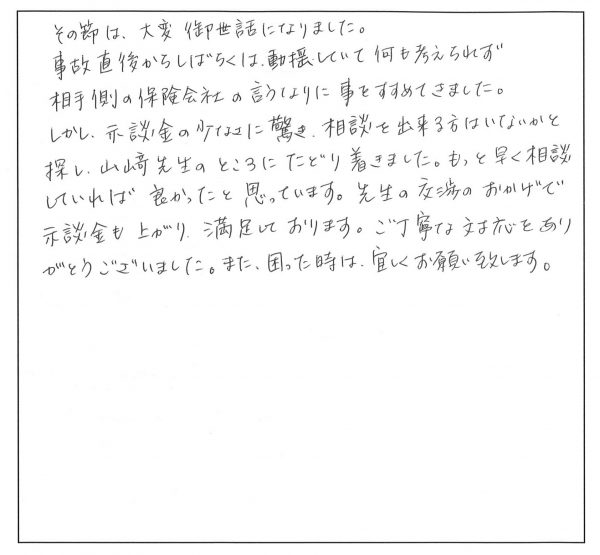 その節は、大変御世話になりました。
事故直後からしばらくは、動揺していて何も考えられず
相手側の保険会社の言うなりに事をすすめてきました。
しかし、示談金の少なさに驚き、相談を出来る方はいないかと
探し、山﨑先生のところにたどり着きました。もっと早く相談
していれば良かったと思っています。先生の交渉のおかげで
示談金も上がり、満足しております。ご丁寧な対応をあり
がとうございました。また、困った時は、宜しくお願い致します。